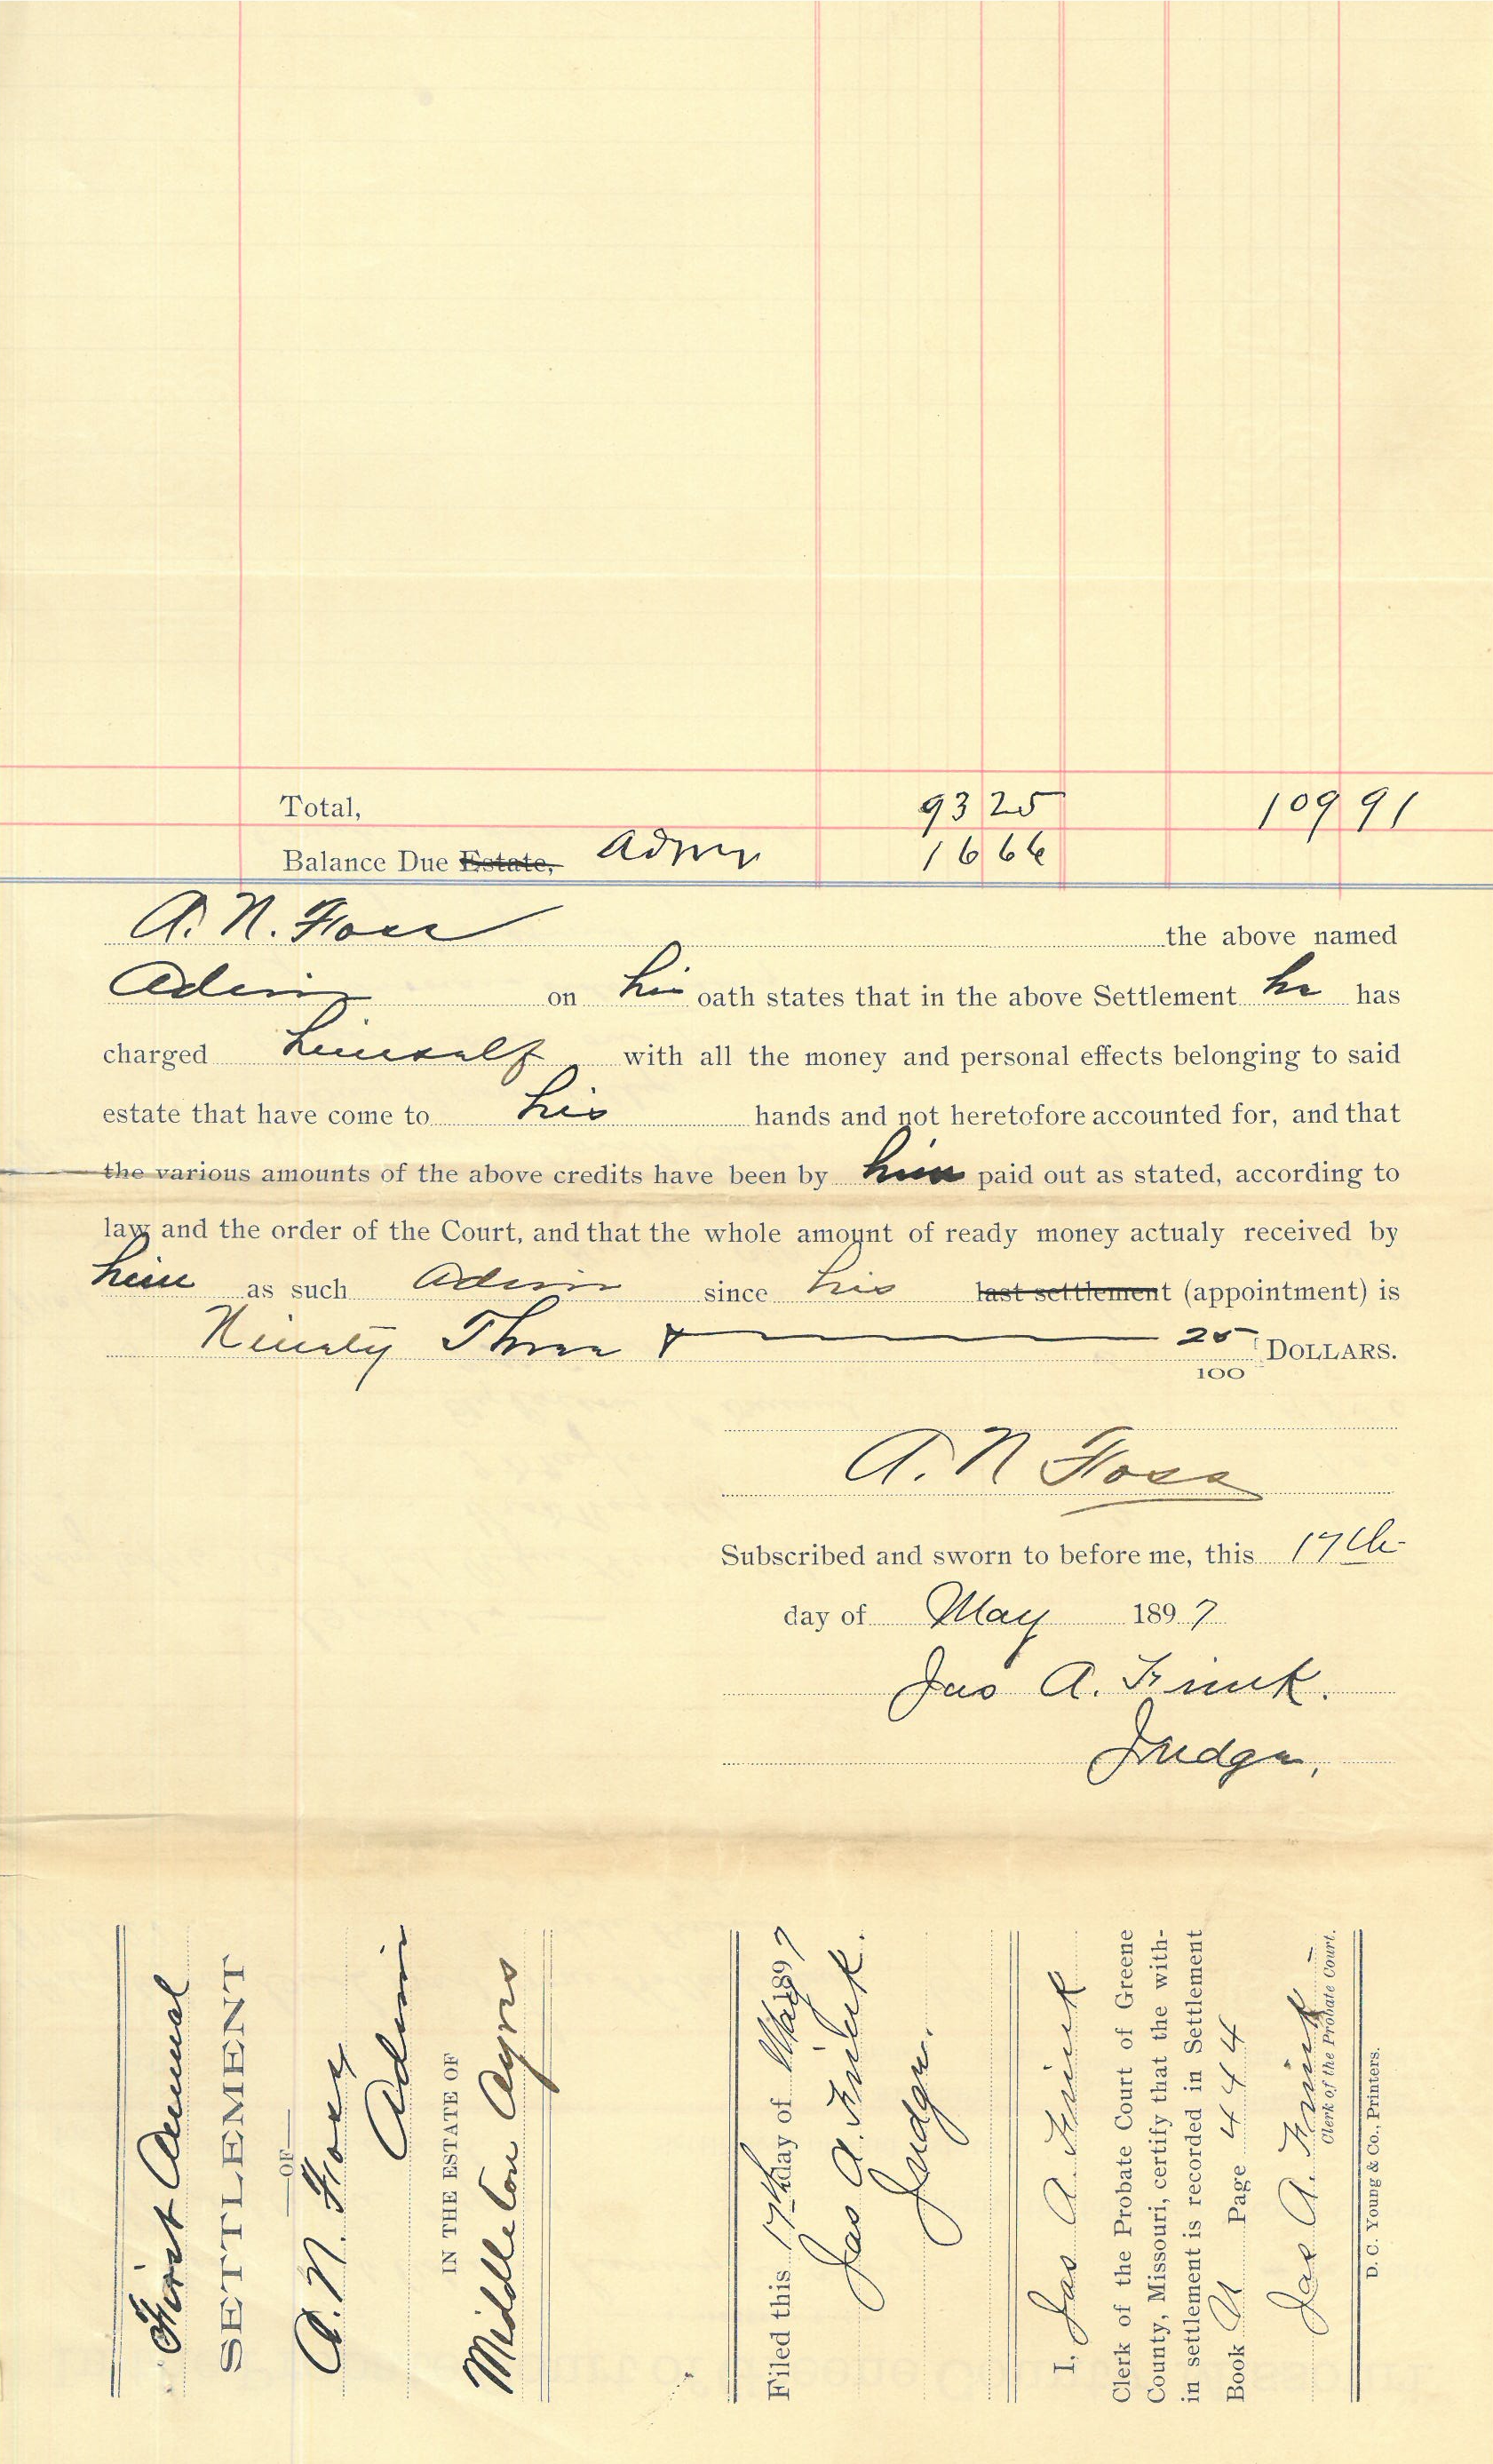 Total, 93 25 109 91
Balance Due Estate, Admr 16 66
A. N. Foss the above named
Admr on his oath states that in the above Settlement he has
charged himself with all the money and personal effects belonging to said
estate that have come to his hands and not heretofore accounted for, and that
the various amounts of the above credits have been by him paid out as stated, according to
law and the order of the Court, and that the whole amount of ready money actualy received by
him as such Admr since his last settlement (appointment) is
Ninety Three & 25/100 DOLLARS.
A. N Foss
Subscribed and sworn to before me, this 17th
day of May 1897
Jas A. Frink.
Judge,
First Annual
SETTLEMENT
OF
A. N. Foss
Admr
IN THE ESTATE OF
Middleton Ayres
Filed this 17th day of May 1897
Jas A. Frink.
Judge.
I, Jas A. Frink
Clerk of the Probate Court of Greene
County, Missouri, certify that the with-
in settlement is recorded in Settlement
Book U Page 444
Jas A. Frink
Clerk of the Probate Court.
D. C. Young & Co., Printers.